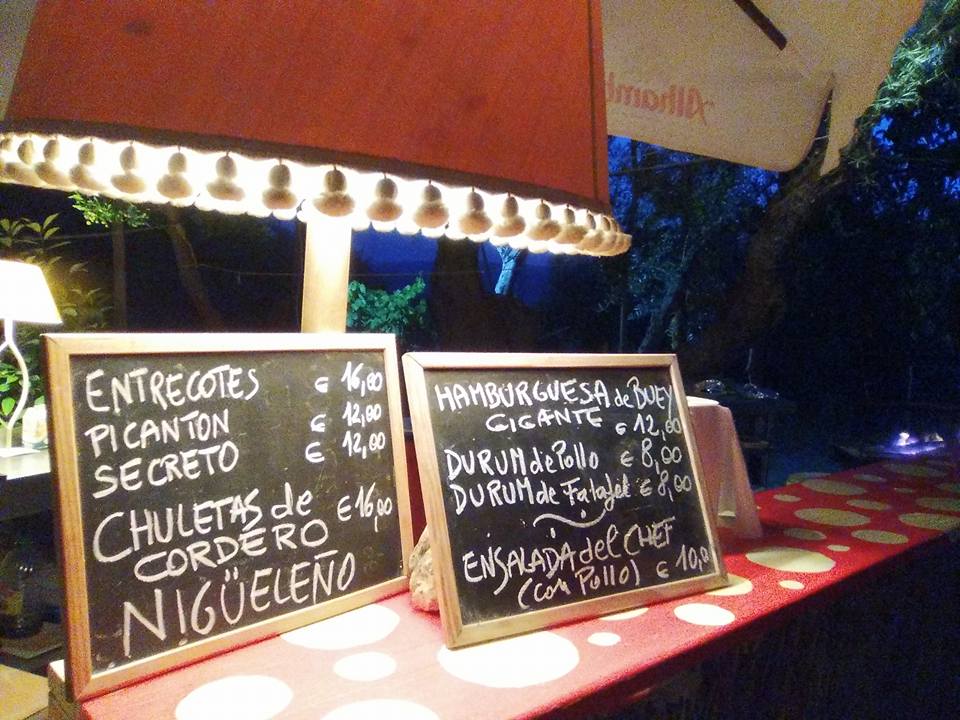 Alhamb
ENTRECOTES € 16,00
PICANTON € 12,00
SECRETO € 12,00
CHULETAS de € 16,00
CORDERO
NIGÜELEÑO
HAMBURGUESA de BUEY
GIGANTE € 12,00
DURUM de Pollo € 8,00
DURUM de Falafel € 8,00
ENSALADA del CHEF
(con Pollo) € 10,0